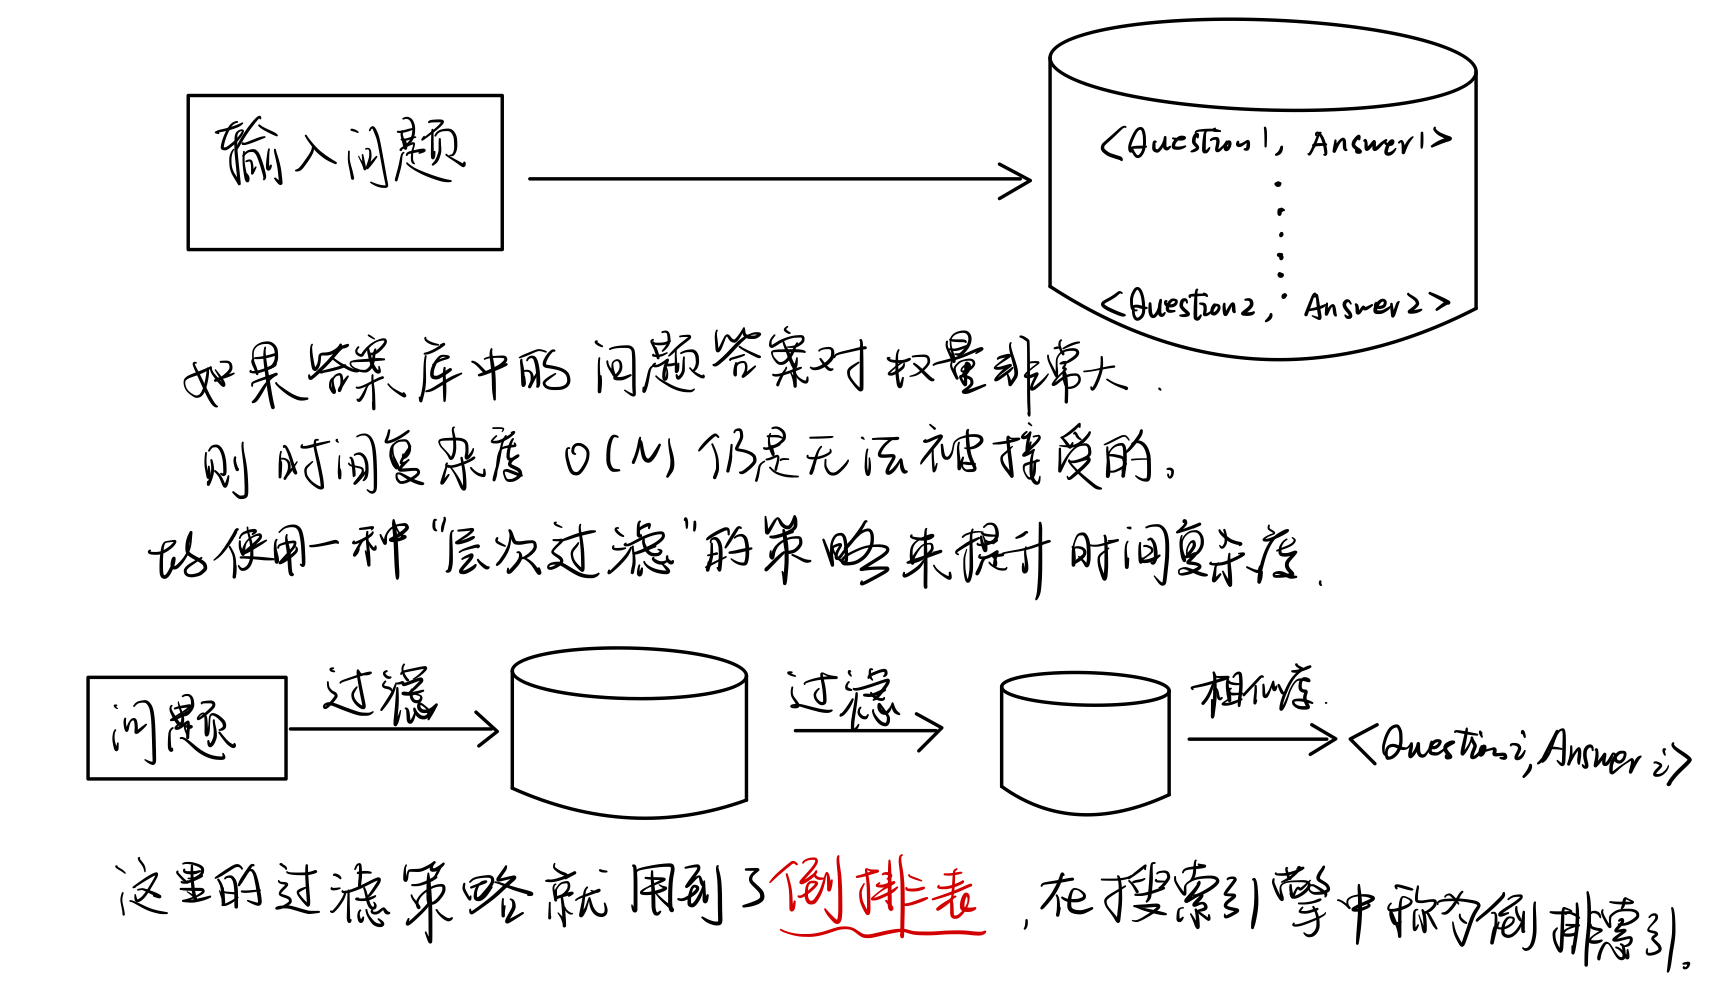 输入问题
<Question1, Answer1>
<Question2, Answer2>
如果答案库中的问题答案对数量非常大.
则时间复杂度 O(N) 仍是无法被接受的。
故使用一种“层次过滤”的策略来提升时间复杂度.
问题
过滤
过滤
相似度.
<Question i, Answer i>
这里的过滤策略就用到了倒排表,在搜索引擎中称为倒排索引。